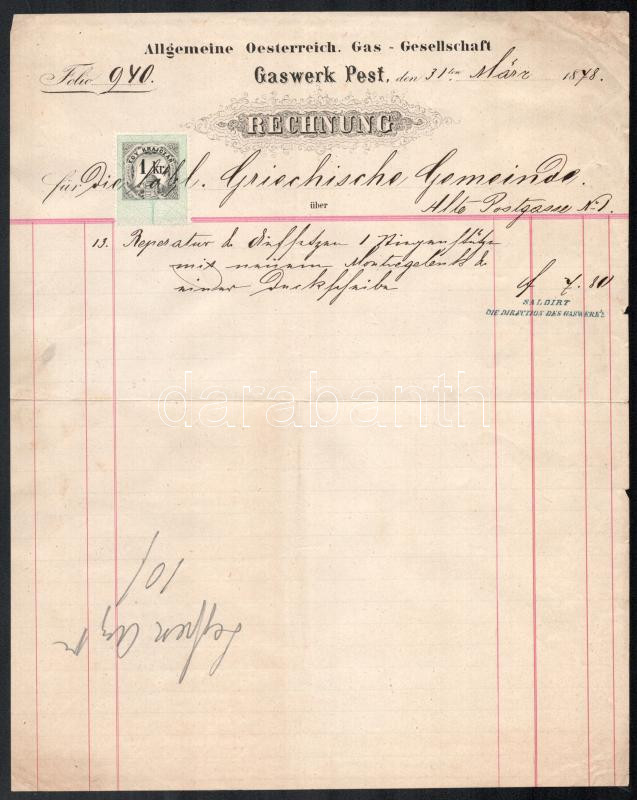 Allgemeine Oesterreich. Gas - Gesellschaft
Folio 940.
Gaswerk Pest, den 31ten März 1878.
RECHNUNG
EGY KRAJCZÁR
1 Kr.
für Die löbl. Griechische Gemeinde.
über
Alte Postgasse N 1.
13. Reperatur &
mit neuem &
einer Deckscheibe f 7.80
SALDIRT
DIE DIRECTION DES GASWERK'S
darabanth
10/